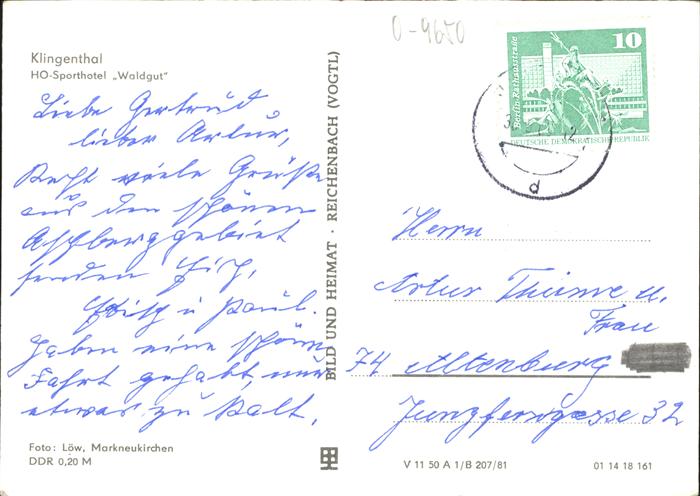 0-9650
Klingenthal
HO-Sporthotel „Waldgut"
Liebe Gertrud
lieber Artur,
Recht viele Grüße
aus dem schönen
Aschberggebiet
senden Euch,
u. Paul.
Haben eine schöne
Fahrt gehabt, nur
etwas zu kalt.
Foto: Löw, Markneukirchen
DDR 0,20 M
BILD UND HEIMAT · REICHENBACH (VOGTL)
10
Berlin, Rathausstraße
DEUTSCHE DEMOKRATISCHE REPUBLIK
d
Herrn
Artur Thieme u.
Frau
74 Altenburg
Jungferngasse 32
V 11 50 A 1/B 207/81
01 14 18 161